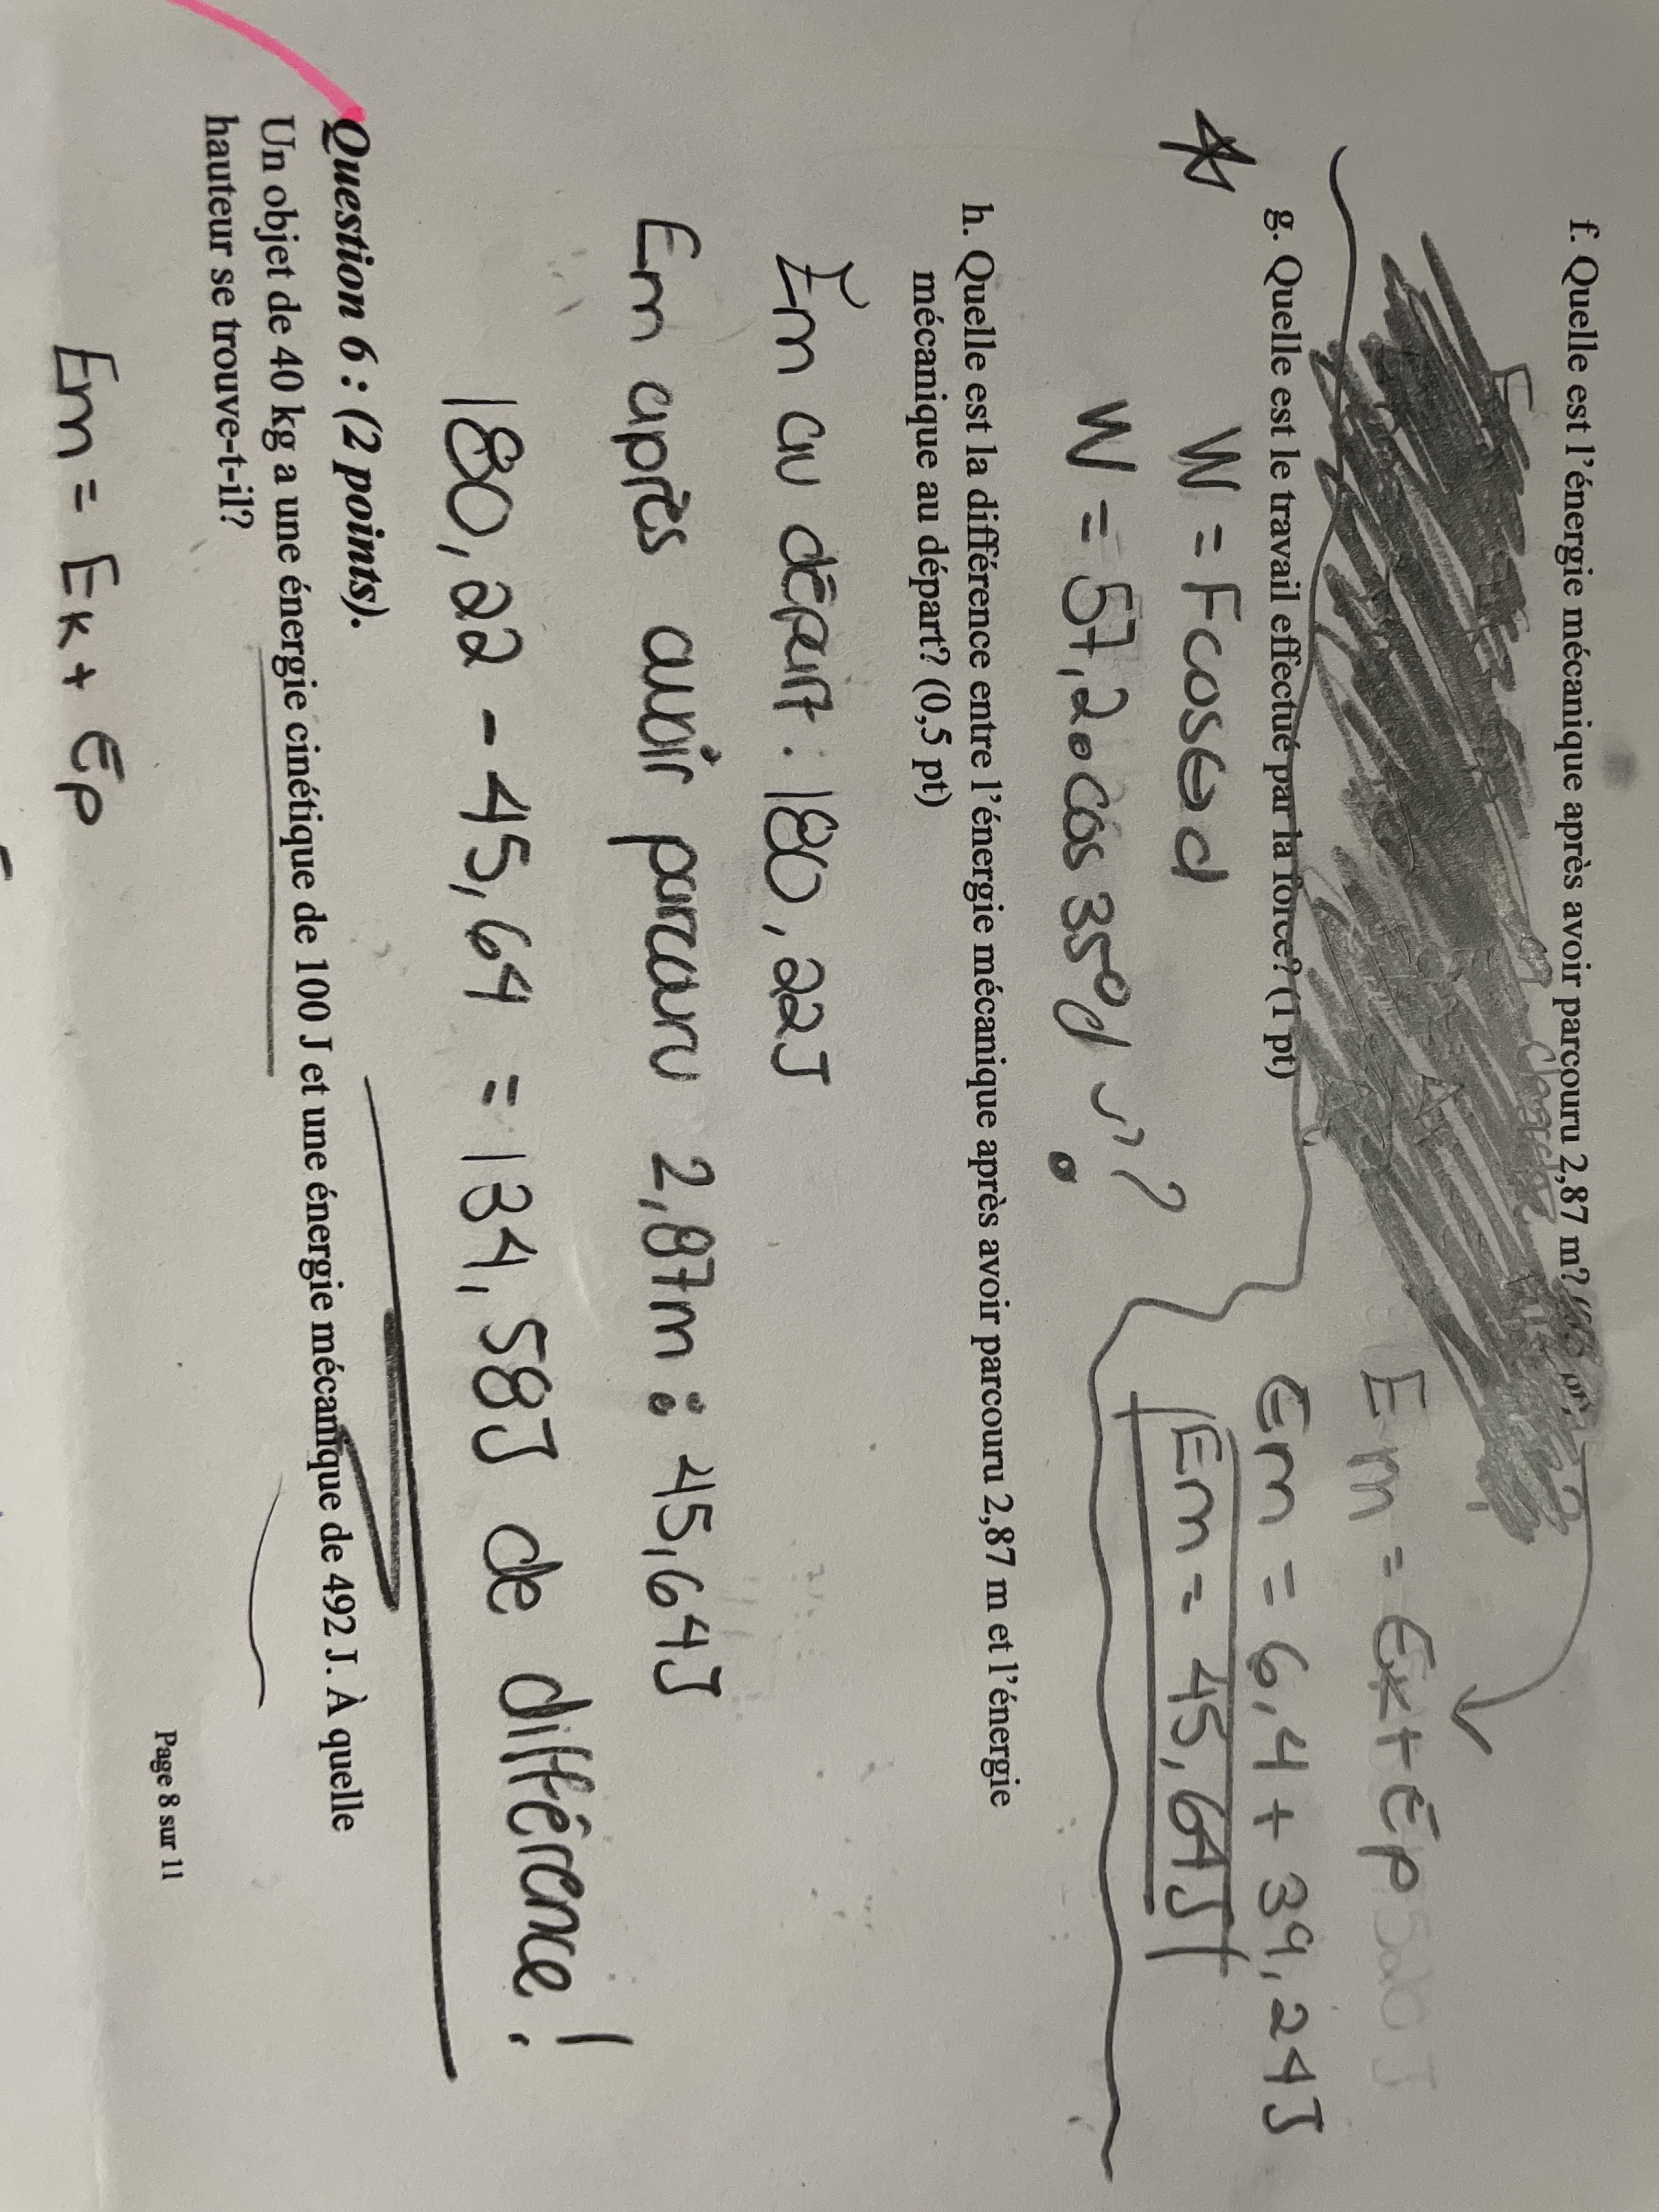 f. Quelle est l'énergie mécanique après avoir parcouru 2,87 m?
Em = Ek + Ep
Em = 6,4 + 39,24J
Em = 45,64J
g. Quelle est le travail effectué par la force? (1 pt)
W = Fcosθd
W = 57,20cos35°d ?
h. Quelle est la différence entre l'énergie mécanique après avoir parcouru 2,87 m et l'énergie
mécanique au départ? (0,5 pt)
Em au départ : 180,22J
Em après avoir parcouru 2,87m : 45,64J
180,22 - 45,64 = 134,58J de différence!
Question 6 : (2 points).
Un objet de 40 kg a une énergie cinétique de 100 J et une énergie mécanique de 492 J. À quelle
hauteur se trouve-t-il?
Em = Ek + Ep
Page 8 sur 11